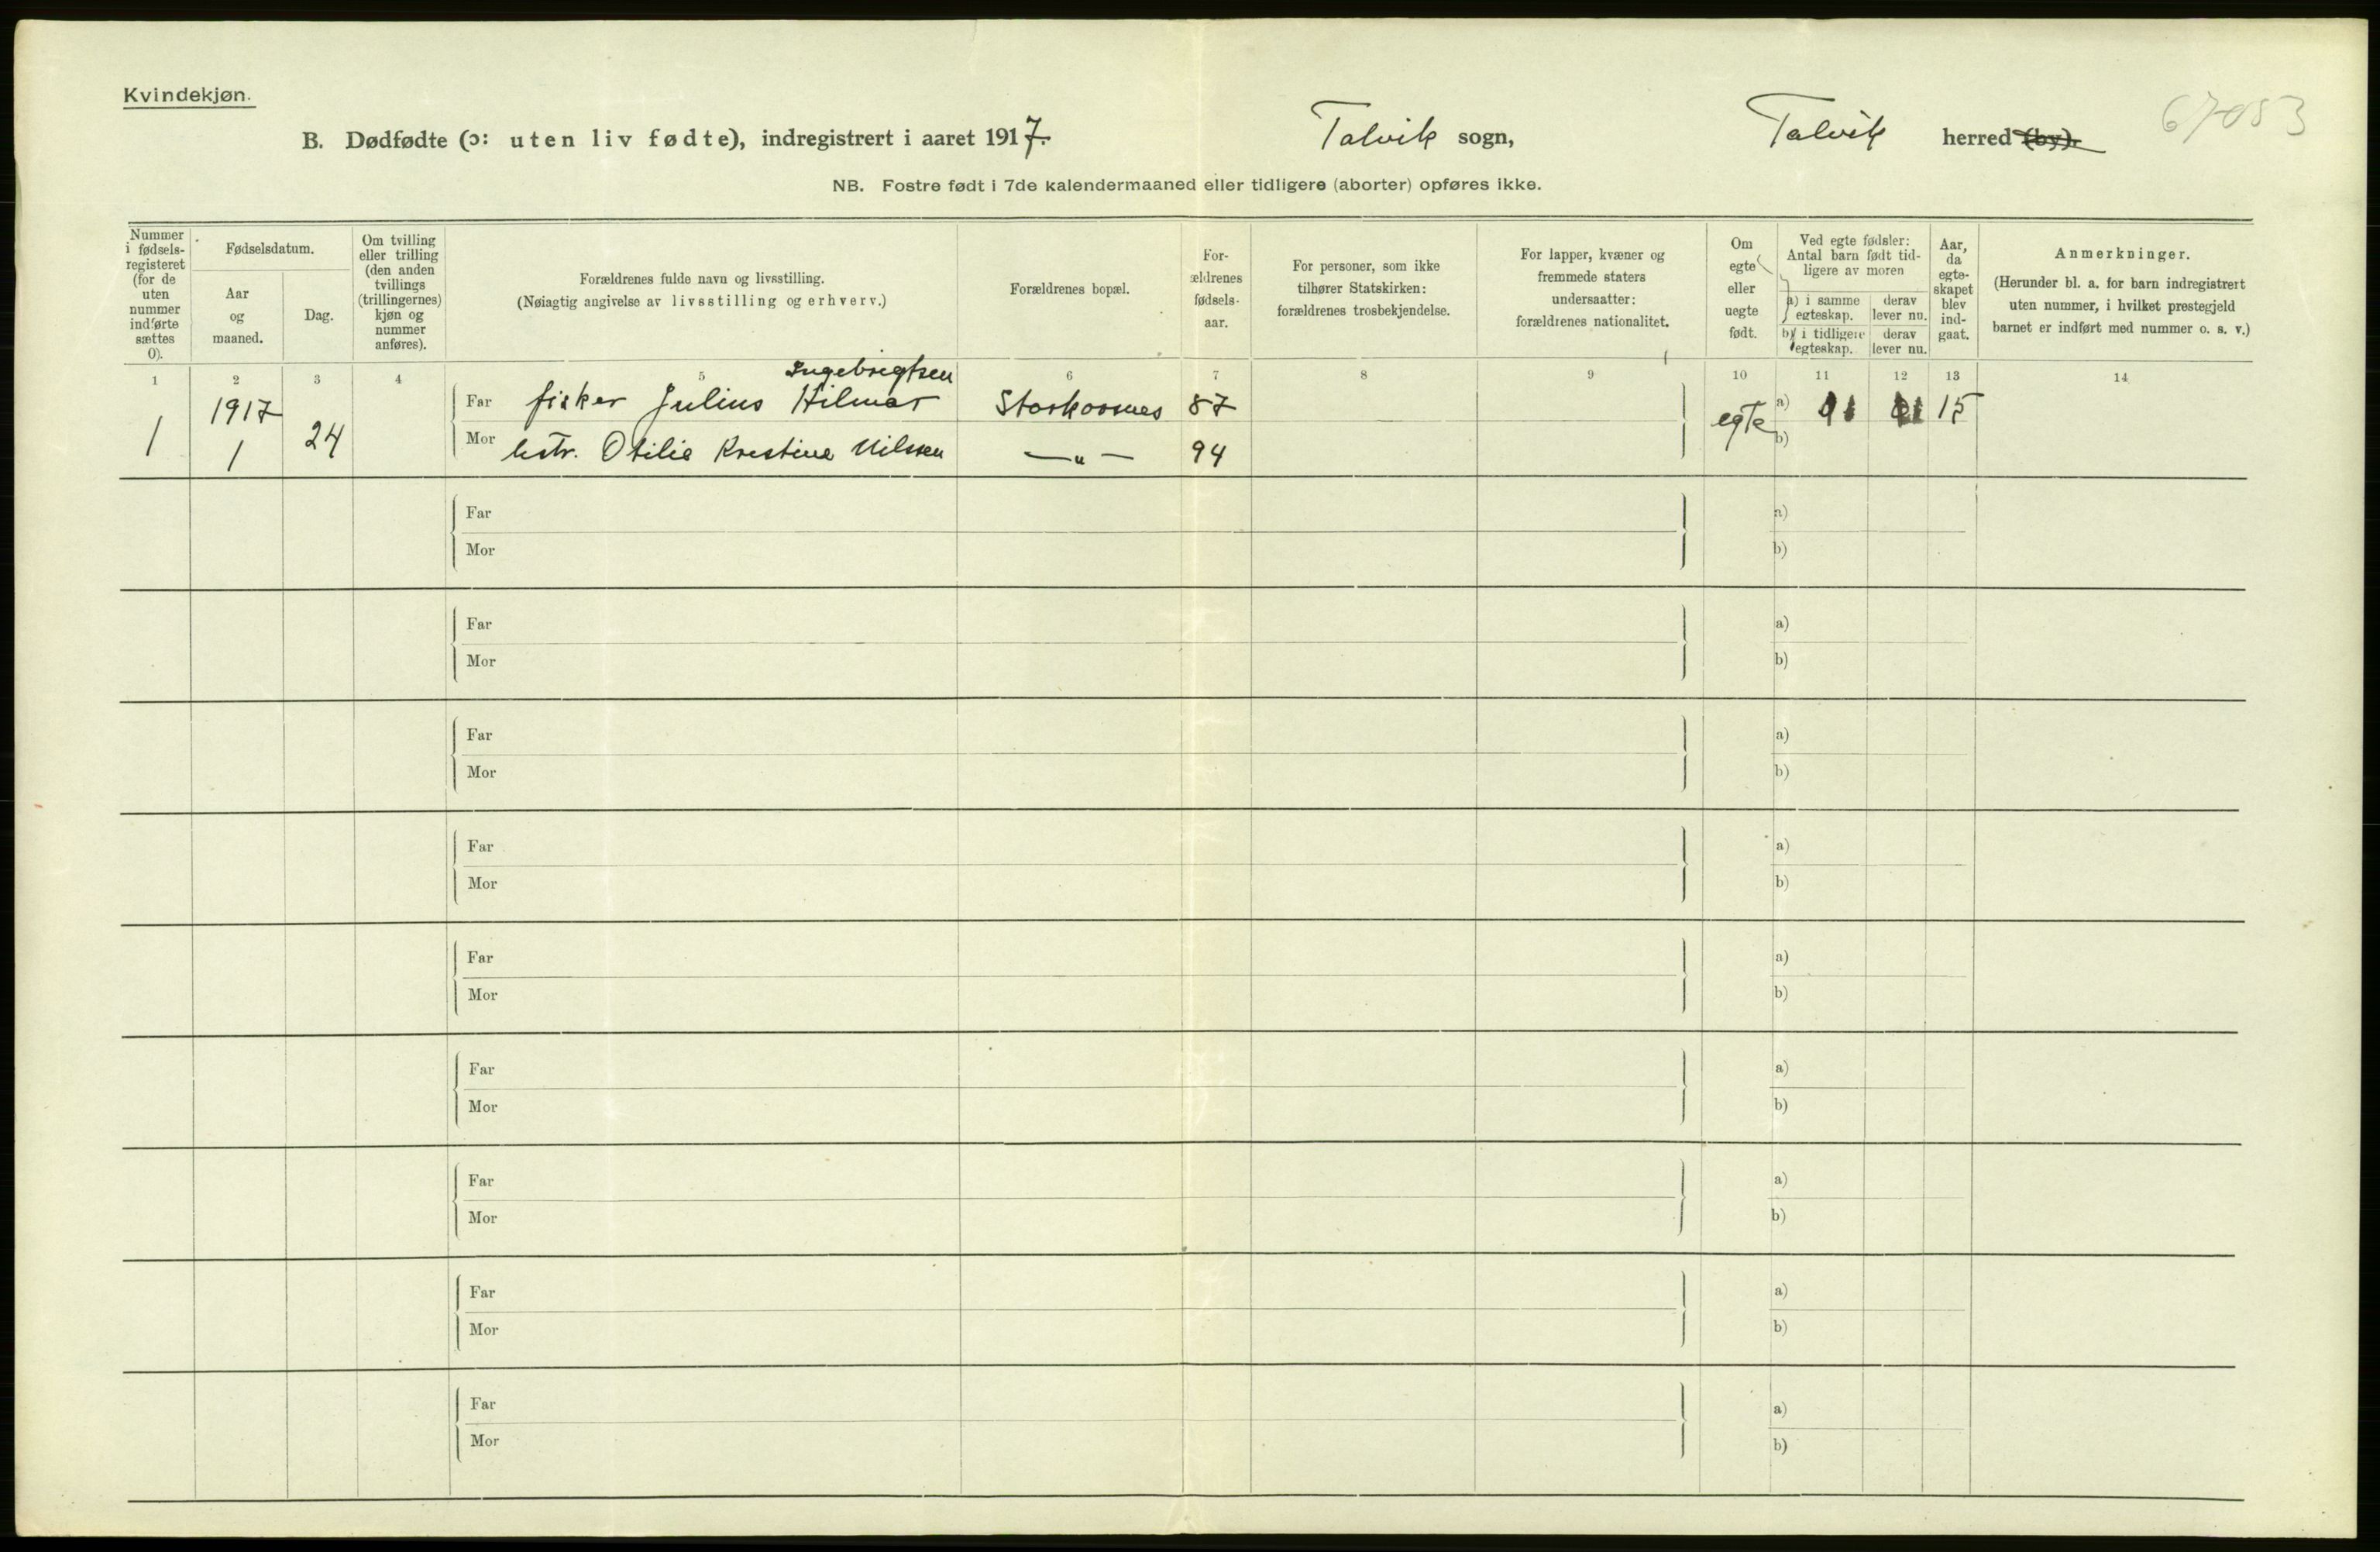 Kvindekjøn.
B. Dødfødte (ɔ: uten liv fødte), indregistrert i aaret 1917. Talvik sogn, Talvik herred (by).
67053
NB. Fostre født i 7de kalendermaaned eller tidligere (aborter) opføres ikke.
Nummer
i fødsels-
registeret
(for de
uten
nummer
indførte
sættes
0).
Fødselsdatum.
Aar
og
maaned.
Dag.
Om tvilling
eller trilling
(den anden
tvillings
(trillingernes)
kjøn og
nummer
anføres).
Forældrenes fulde navn og livsstilling.
(Nøiagtig angivelse av livsstilling og erhverv.)
Forældrenes bopæl.
For-
ældrenes
fødsels-
aar.
For personer, som ikke
tilhører Statskirken:
forældrenes trosbekjendelse.
For lapper, kvæner og
fremmede staters
undersaatter:
forældrenes nationalitet.
Om
egte
eller
uegte
født.
Ved egte fødsler:
Antal barn født tid-
ligere av moren
a) i samme
egteskap.
derav
lever nu.
b) i tidligere
egteskap.
derav
lever nu.
Aar,
da
egte-
skapet
blev
ind-
gaat.
Anmerkninger.
(Herunder bl. a. for barn indregistrert
uten nummer, i hvilket prestegjeld
barnet er indført med nummer o. s. v.)
1 2 3 4 5 6 7 8 9 10 11 12 13 14
Ingebrigtsen
1 1917 1 24
Far fisker Julius Hilmar Storkorsnes 87 egte a) 1 1 15
Mor hstr. Otilie Kristine Nilsen — " — 94 b)
Far a)
Mor b)
Far a)
Mor b)
Far a)
Mor b)
Far a)
Mor b)
Far a)
Mor b)
Far a)
Mor b)
Far a)
Mor b)
Far a)
Mor b)
Far a)
Mor b)